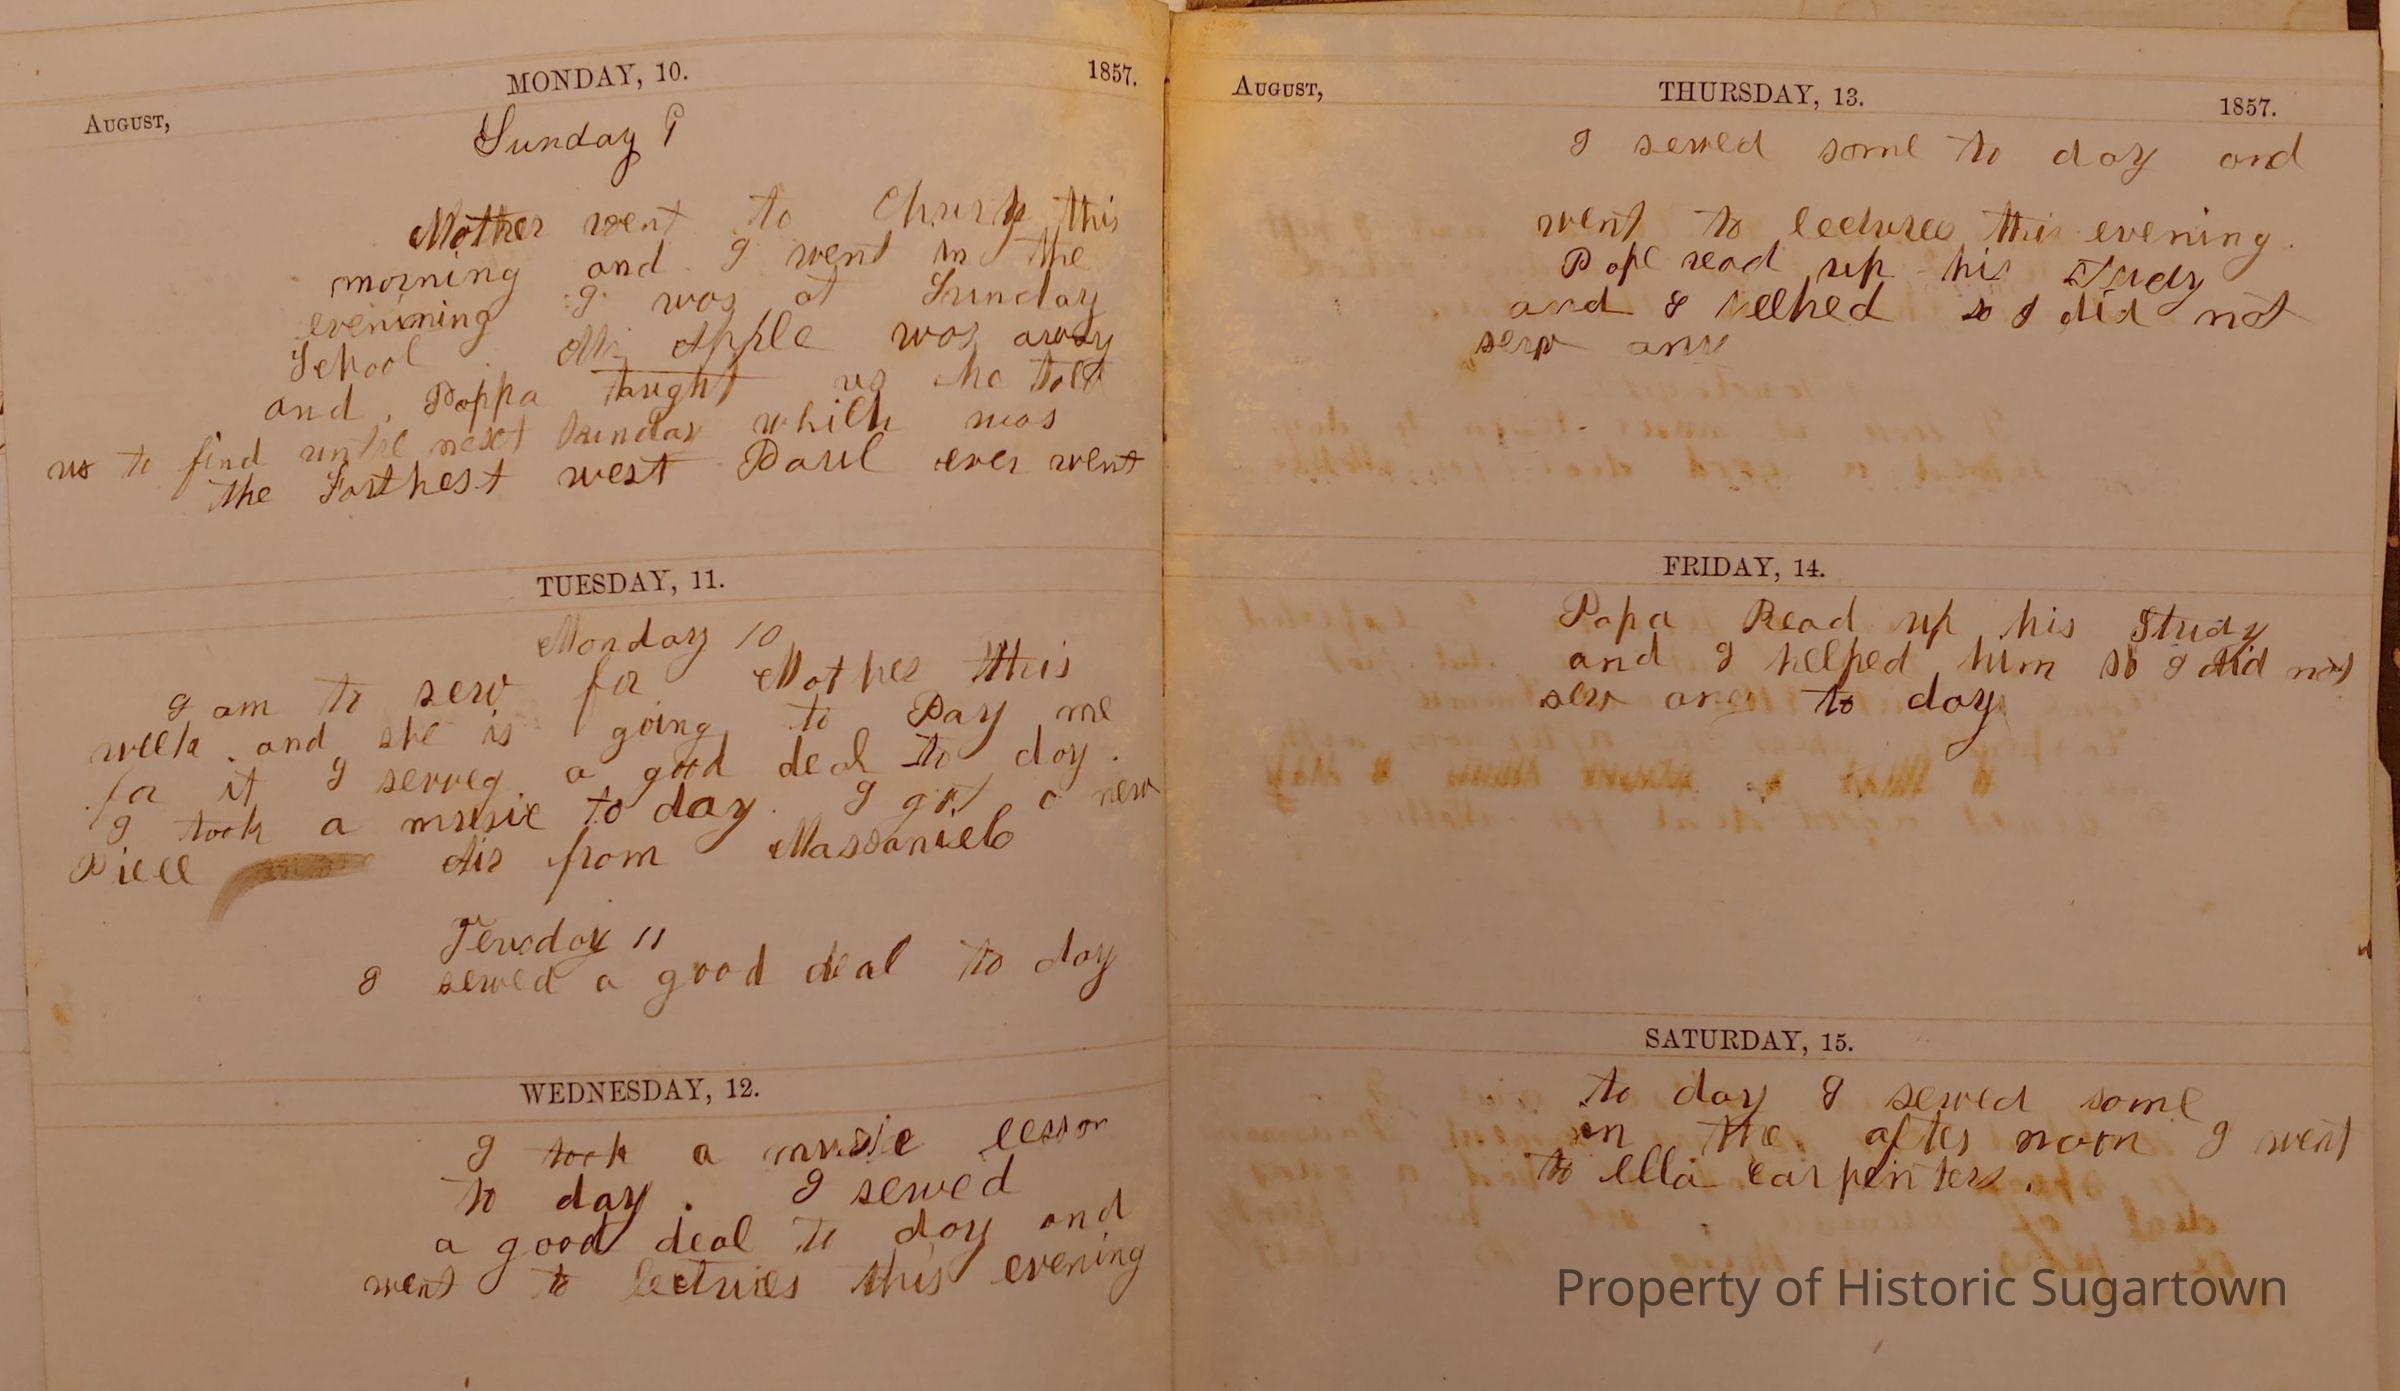 MONDAY, 10.
August, 1857.
Sunday 9
Mother went to Church this
morning and I went in the
evenining I was at Sunday
School. Mr Apple was away
and, Poppa taught us he told
us to find untill next Sunday which was
the Farthest west Paul ever went
TUESDAY, 11.
Monday 10
I am to sew for Mother this
week. and she is going to Pay me
for it I sewed a good deal to day.
I took a music to day. I got a new
Piece Air from Massanielo
Teusday 11
I sewed a good deal to day
WEDNESDAY, 12.
I took a music lesson
to day. I sewed
a good deal to day and
went to lectures this evening
August, THURSDAY, 13. 1857.
I sewed some to day and
went to lectures this evening.
Pape read up his Study
and I helped so I did not
sew any
FRIDAY, 14.
Papa Read up his Study
and I helped him so I did not
sew any to day
SATURDAY, 15.
to day I sewed some
in the after noon I went
to Ella Carpenters.
Property of Historic Sugartown